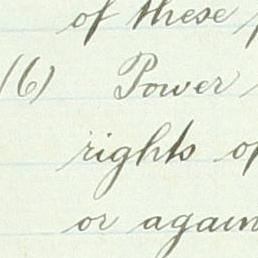 of these
(6) Power
rights of
or again